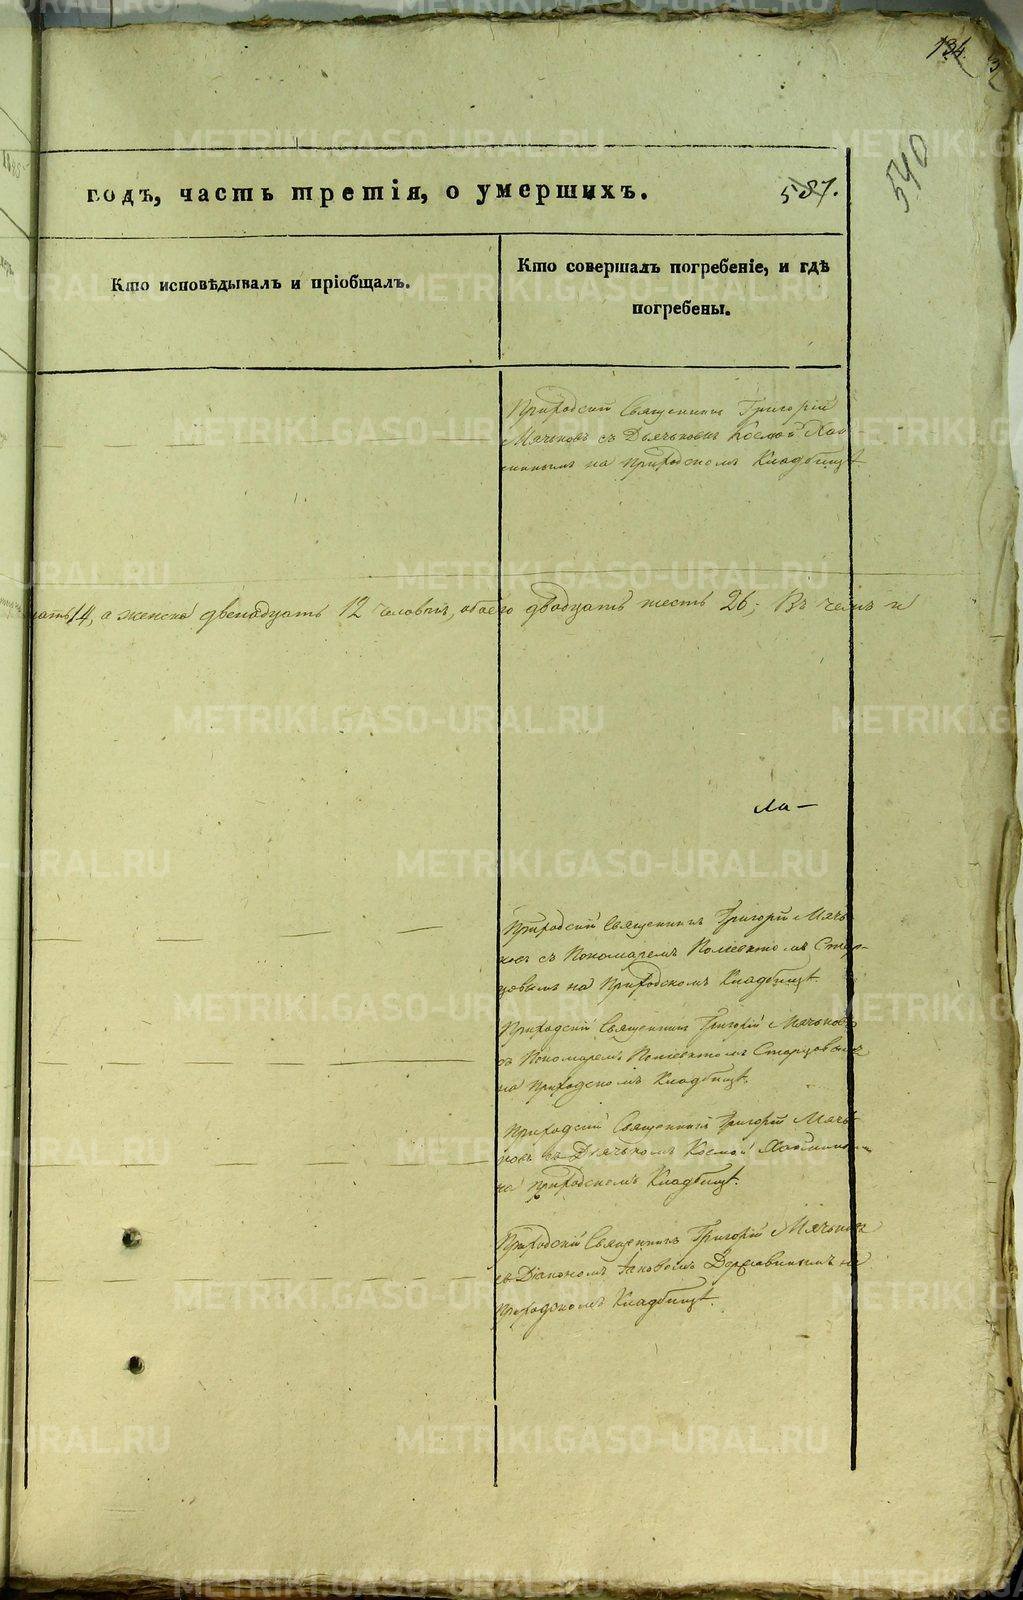 134.
3
540
годъ, часть третія, о умершихъ.
587.
Кто исповѣдывалъ и пріобщалъ.
Кто совершалъ погребеніе, и гдѣ
погребены.
Приходскій Священникъ Григорій
Мячковъ съ Дьячькомъ Космой
на приходскомъ Кладбищѣ
14, а женска двенадцать 12 человѣкъ, обоего двадцать шесть 26; Въ чемъ и
ла-
Приходскій Священникъ Григорій Мячь-
ковъ съ Пономаремъ Поліевктомъ Стар-
цовымъ на Приходскомъ Кладбищѣ.
Приходскій Священникъ Григорій Мячьковъ
съ Пономаремъ Поліевктомъ Старцовымъ
на приходскомъ Кладбищѣ.
Приходскій Священникъ Григорій Мячь-
ковъ съ Дьячькомъ Космой
на приходскомъ Кладбищѣ.
Приходскій Священникъ Григорій Мячьковъ
съ Діакономъ Іаковомъ Державинымъ на
приходскомъ Кладбищѣ.
METRIKI.GASO-URAL.RU